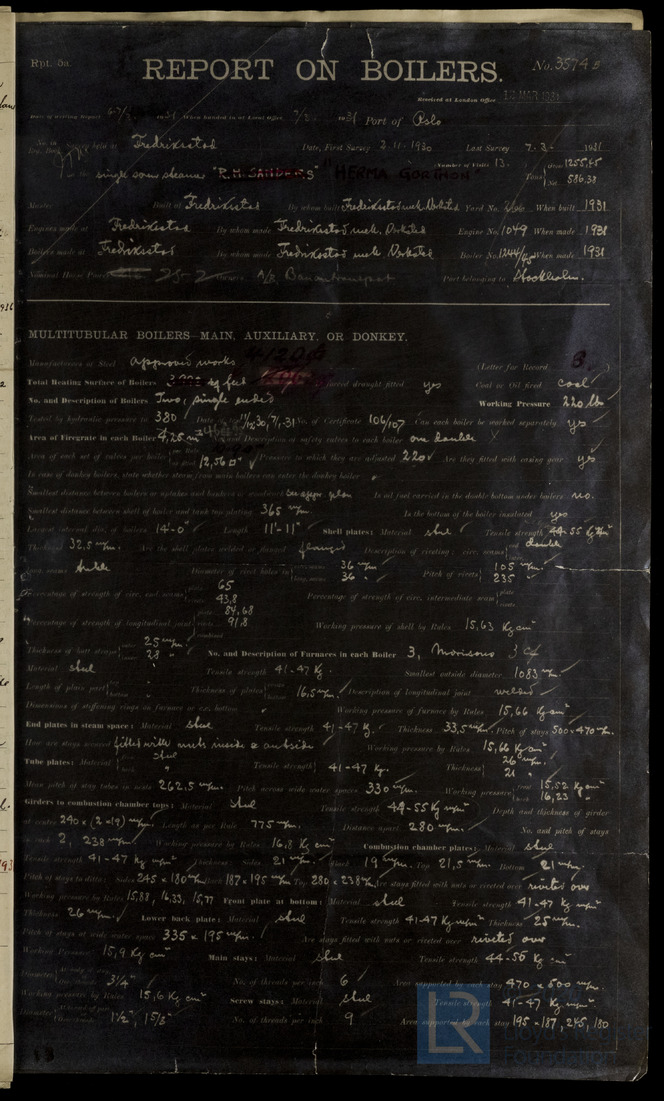 Rpt. 5a. REPORT ON BOILERS. No. 3574
Received at London Office
Port of Oslo
Survey held at Fredrikstad Date, First Survey 2.11.1930 Last Survey 7.3. 1931
on the single screw steamer "HERMA GORTHON" (Number of Visits 13.) Tons 1255,45 586,38
Master Built at Fredrikstad By whom built Fredrikstad mek. Verksted Yard No. When built 1931
Engines made at Fredrikstad By whom made Fredrikstad mek. Verksted Engine No. 1049 When made 1931
Boilers made at Fredrikstad By whom made Fredrikstad mek. Verksted Boiler No. 1244/45 When made 1931
Nominal Horse Power Owners Port belonging to Stockholm.
MULTITUBULAR BOILERS—MAIN, AUXILIARY, OR DONKEY.
Manufacturers of Steel approved works (Letter for Record
Total Heating Surface of Boilers sq feet forced draught fitted yes Coal or Oil fired coal
No. and Description of Boilers Two, single ended Working Pressure 220 lbs
Tested by hydraulic pressure to 380 Date No. of Certificate 106/107 Can each boiler be worked separately yes
Area of Firegrate in each Boiler 4,25 m² No. and Description of safety valves to each boiler one double
Area of each set of valves per boiler 12,56 Pressure to which they are adjusted 220 Are they fitted with easing gear yes
In case of donkey boilers, state whether steam from main boilers can enter the donkey boiler
Smallest distance between boilers or uptakes and bunkers or woodwork see appr. plan Is oil fuel carried in the double bottom under boilers no.
Smallest distance between shell of boiler and tank top plating 365 m/m. Is the bottom of the boiler insulated yes
Largest internal dia. of boilers 14'-0" Length 11'-11" Shell plates: Material steel Tensile strength 44-55 Kg/mm²
Thickness 32,5 m/m. Are the shell plates welded or flanged flanged Description of riveting: circ. seams double
long. seams treble Diameter of rivet holes in 36 m/m. 36 " Pitch of rivets 105 m/m. 235 "
Percentage of strength of circ. end seams 65 43,8 Percentage of strength of circ. intermediate seam
Percentage of strength of longitudinal joint 84,68 91,8 Working pressure of shell by Rules 15,63 Kg/cm²
Thickness of butt straps 25 m/m 28 " No. and Description of Furnaces in each Boiler 3, Morisons
Material steel Tensile strength 41-47 Kg. Smallest outside diameter 1083 m/m
Length of plain part Thickness of plates 16,5 m/m. Description of longitudinal joint welded
Dimensions of stiffening rings on furnace or c.c. bottom Working pressure of furnace by Rules 15,66 Kg/cm²
End plates in steam space: Material steel Tensile strength 41-47 Kg. Thickness 33,5 m/m. Pitch of stays 500 x 470 m/m.
How are stays secured fitted with nuts inside & outside Working pressure by Rules 15,66 Kg/cm²
Tube plates: Material steel Tensile strength 41-47 Kg. Thickness 26 m/m. 21 "
Mean pitch of stay tubes in nests 262,5 m/m. Pitch across wide water spaces 330 m/m. Working pressure 15,52 Kg/cm² 16,23 "
Girders to combustion chamber tops: Material steel Tensile strength 44-55 Kg/mm² Depth and thickness of girder
at centre 240 x (2 x 19) m/m. Length as per Rule 775 m/m. Distance apart 280 m/m. No. and pitch of stays
in each 2, 238 m/m. Working pressure by Rules 16,8 Kg/cm² Combustion chamber plates: Material steel
Tensile strength 41-47 Kg/mm² Thickness: Sides 21 m/m. Back 19 m/m. Top 21,5 m/m. Bottom 21 m/m.
Pitch of stays to ditto: Sides 245 x 180 m/m. Back 187 x 195 m/m. Top 280 x 238 m/m. Are stays fitted with nuts or riveted over riveted over
Working pressure by Rules 15,88, 16,33, 15,77 Front plate at bottom: Material steel Tensile strength 41-47 Kg/mm²
Thickness 26 m/m. Lower back plate: Material steel Tensile strength 41-47 Kg/mm² Thickness 25 m/m.
Pitch of stays at wide water space 335 x 195 m/m. Are stays fitted with nuts or riveted over riveted over
Working Pressure 15,9 Kg/cm² Main stays: Material steel Tensile strength 44-50 Kg/cm²
Diameter 3¼" No. of threads per inch 6 Area supported by each stay 470 x 500 m/m.
Working pressure by Rules 15,6 Kg/cm² Screw stays: Material steel Tensile strength 41-47 Kg/mm²
Diameter No. of threads per inch 9 Area supported by each stay 195-187, 245, 180
LR Lloyd's Register Foundation